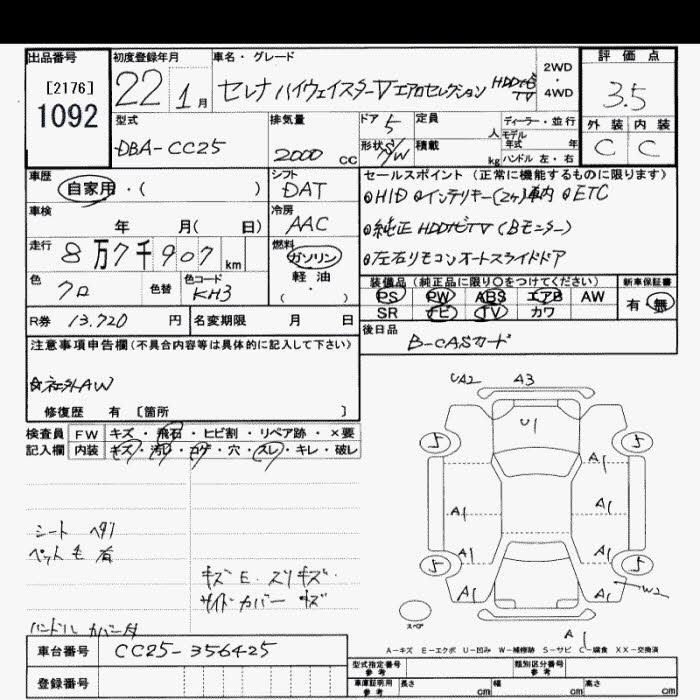 出品番号
[2176]
1092
初度登録年月
22 1月
車名・グレード
セレナ ハイウェイスターV エアロセレクション HDDナビ TV
2WD
・
4WD
評価点
3.5
外装 内装
C C
型式
DBA-CC25
排気量
2000 CC
ドア 5
形状 S/W
定員 人
積載 kg
ディーラー・並行
モデル年式 年
ハンドル 左・右
車歴
自家用・( )
シフト
DAT
車検
年 月( 日)
冷房
AAC
走行
8万7千907 km
燃料
ガソリン
軽油
( ・ )
色
クロ
色替
色コード
KH3
R券 13.720 円
名変期限 月 日
セールスポイント(正常に機能するものに限ります)
●HID ●インテリキー(2ヶ)車内 ●ETC
●純正HDDナビTV(Bモニター)
●左右リモコンオートスライドドア
装備品(純正品に限り○をつけてください)
PS PW ABS エアB AW
SR ナビ TV カワ
新車保証書
有・無
後日品
B-CASカード
注意事項申告欄(不具合内容等は具体的に記入して下さい)
☆社外AW
修復歴 有 [箇所 ]
検査員 FW キズ・飛石・ヒビ割・リペア跡・×要
記入欄 内装 キズ・汚レ・コゲ・穴・スレ・キレ・破レ
シート ヘタリ
ペット毛 有
キズ E. スリキズ.
サイドカバー キズ
ハンドル カバー
UA2 A3
U1
5 5
A1
A1 A1
A1 A1
5 5
A1 A1 W2
スペア
A1
A-キズ E-エクボ U-凹み W-補修跡 S-サビ C-腐食 XX-交換済
車台番号 CC25-356425
登録番号
型式指定番号 参考
類別区分番号 参考
車庫証明用 参考 長さ cm 幅 cm 高さ cm